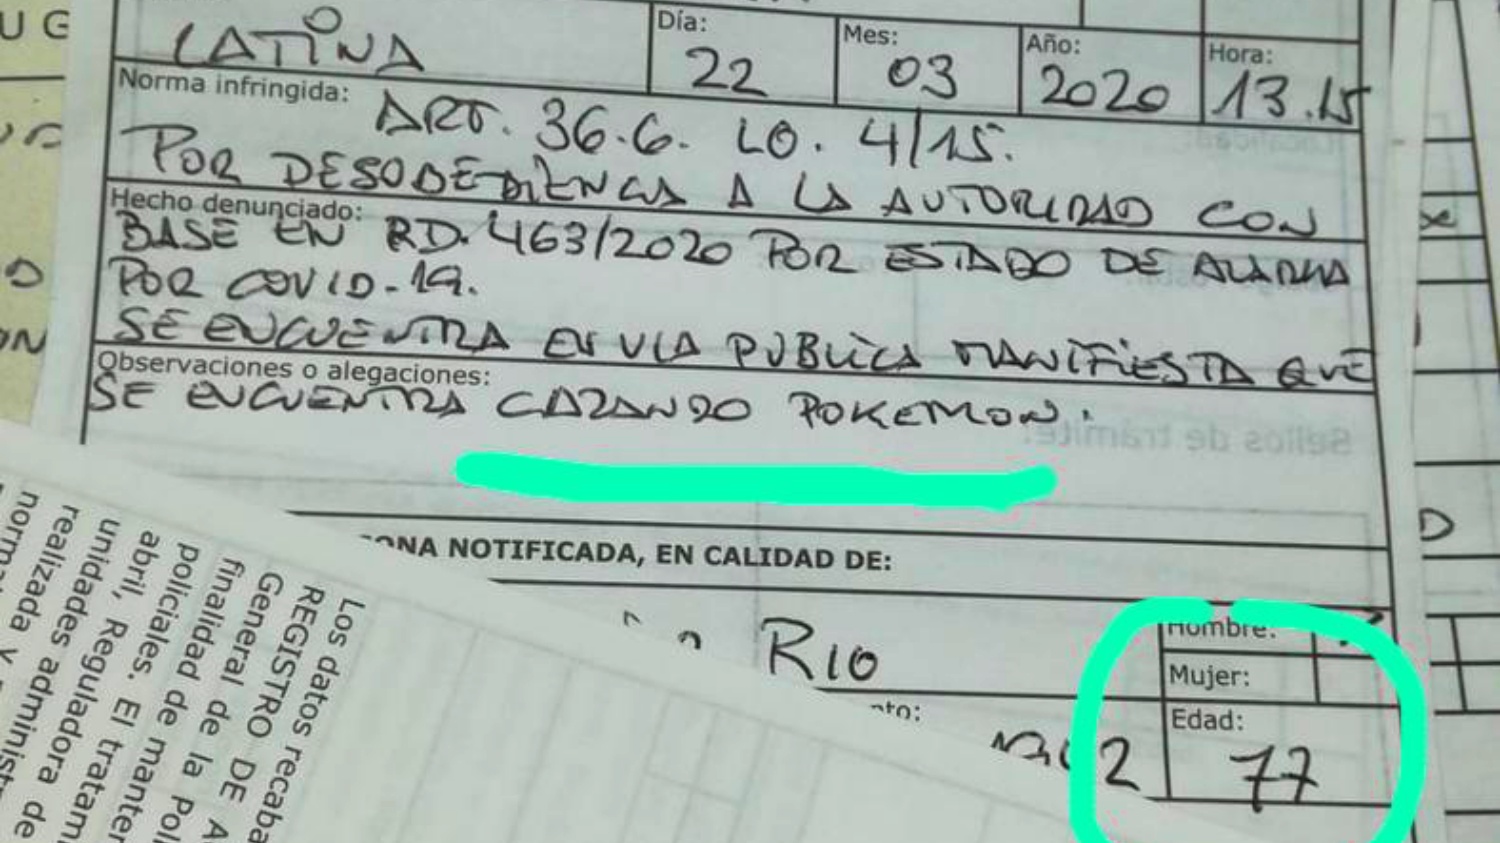 U G
LATINA
Día: 22
Mes: 03
Año: 2020
Hora: 13.15
Norma infringida: ART. 36.6. LO. 4/15.
POR DESOBEDIENCIA A LA AUTORIDAD CON
Hecho denunciado:
BASE EN RD. 463/2020 POR ESTADO DE ALARMA
POR COVID-19.
SE ENCUENTRA EN VIA PUBLICA MANIFIESTA QUE
Observaciones o alegaciones:
SE ENCUENTRA CAZANDO POKEMON.
Sellos de trámite:
ONA NOTIFICADA, EN CALIDAD DE:
RIO
Hombre:
Mujer:
nto:
2
Edad:
77
Los datos recaba
REGISTRO DE A
General de la Pol
finalidad de manten
policiales. El tratam
abril, Reguladora de
unidades administr
realizada y
norma